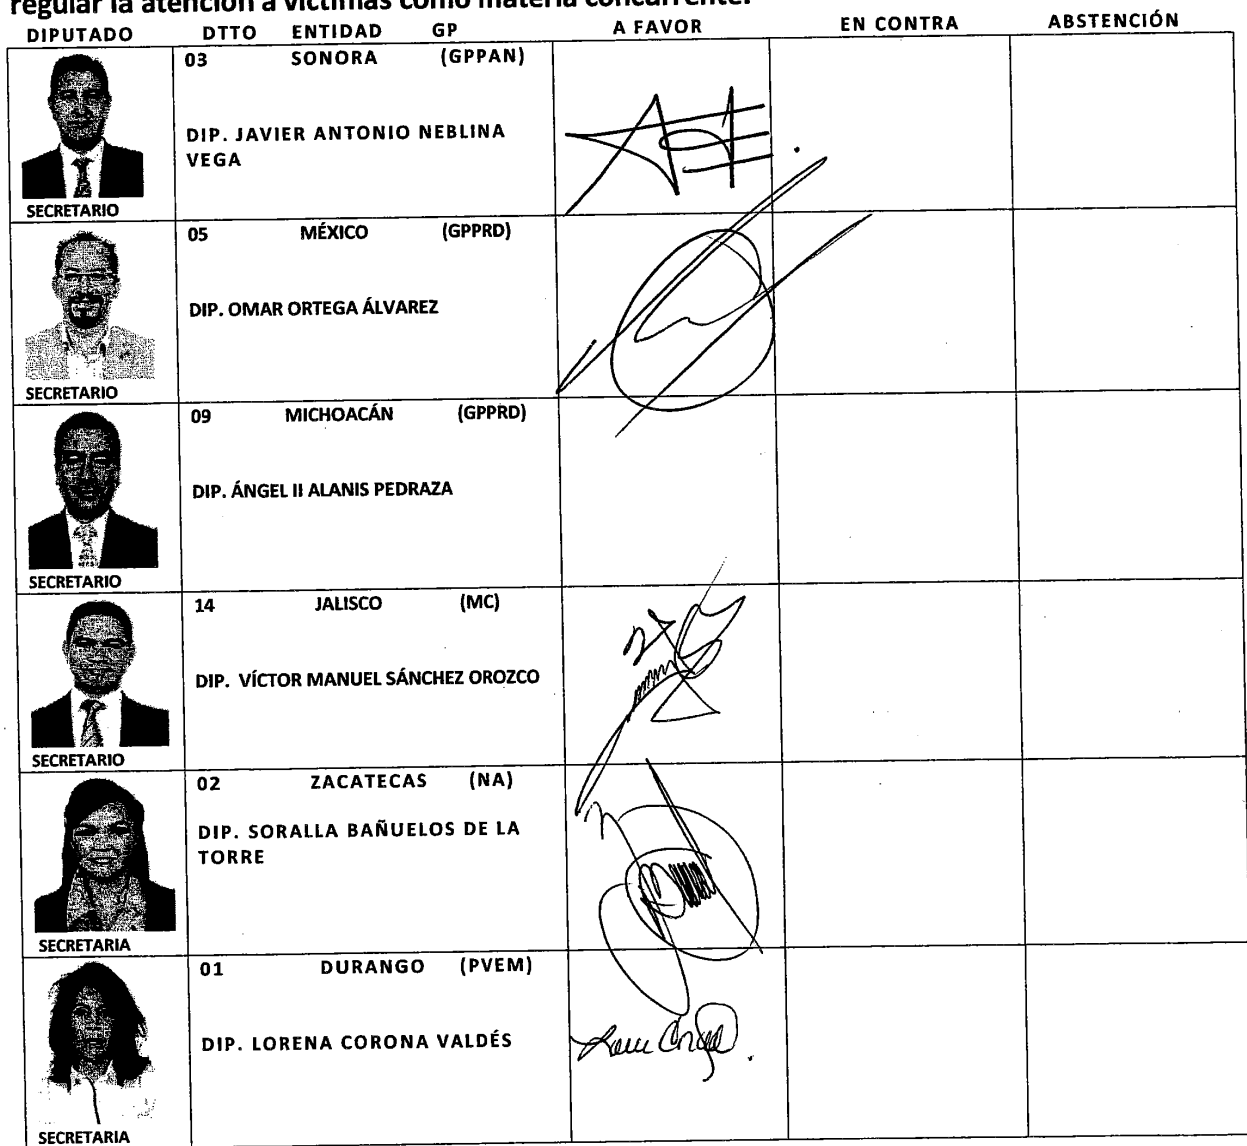 regular la atención a víctimas como materia concurrente.
DIPUTADO DTTO ENTIDAD GP A FAVOR EN CONTRA ABSTENCIÓN
03 SONORA (GPPAN)
DIP. JAVIER ANTONIO NEBLINA
VEGA
SECRETARIO
05 MÉXICO (GPPRD)
DIP. OMAR ORTEGA ÁLVAREZ
SECRETARIO
09 MICHOACÁN (GPPRD)
DIP. ÁNGEL II ALANIS PEDRAZA
SECRETARIO
14 JALISCO (MC)
DIP. VÍCTOR MANUEL SÁNCHEZ OROZCO
SECRETARIO
02 ZACATECAS (NA)
DIP. SORALLA BAÑUELOS DE LA
TORRE
SECRETARIA
01 DURANGO (PVEM)
DIP. LORENA CORONA VALDÉS
SECRETARIA